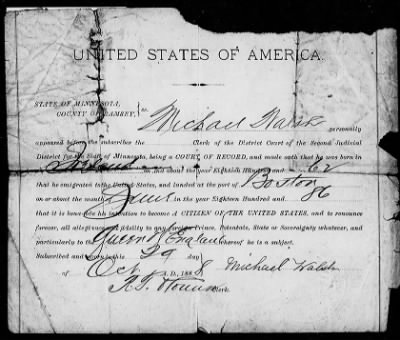 UNITED STATES OF AMERICA.
STATE OF MINNESOTA,
COUNTY OF RAMSEY, } ss.
Michael Walsh personally
appeared before the subscriber the Clerk of the District Court of the Second Judicial
District for the State of Minnesota, being a COURT OF RECORD, and made oath that he was born in
Ireland on or about the year Eighteen Hundred and 62
that he emigrated to the United States, and landed at the port of Boston
on or about the month June in the year Eighteen Hundred and 86
that it is bona fide his intention to become A CITIZEN OF THE UNITED STATES, and to renounce
forever, all allegiance and fidelity to any foreign Prince, Potentate, State or Sovereignty whatever, and
particularly to the Queen of England whereof he is a subject.
Subscribed and sworn to this 29 day
of Oct A.D., 1888 Michael Walsh
Clerk.